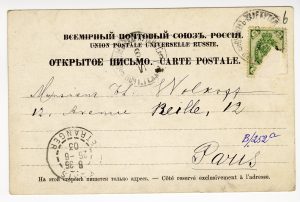 ВСЕМІРНЫЙ ПОЧТОВЫЙ СОЮЗЪ. РОССІЯ.
UNION POSTALE UNIVERSELLE RUSSIE.
ОТКРЫТОЕ ПИСЬМО. — CARTE POSTALE.
6
Wolkoff
12, Avenue
B/252a
Paris
ETRANGER
8 35
25-6
03
На этой сторонѣ пишется только адресъ. — Côté réservé exclusivement à l'adresse.